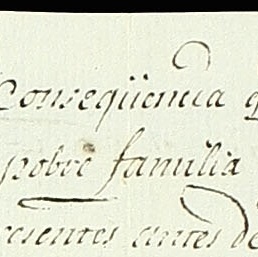 Conseqüencia q
pobre familia
resentes antes de